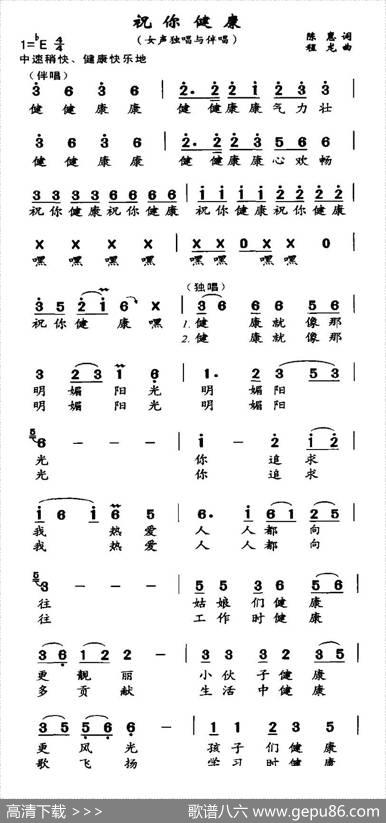 祝你健康
1=♭E 4/4 (女声独唱与伴唱) 陈惠 词
程龙 曲
中速稍快、健康快乐地
(伴唱)
3 6 3 3 | 2· 2 1 2 3 3
健 健 健 康 健 健 康 康 气 力 壮
3 6 3 3 | 2· 2 2 3 5 6 6
健 健 健 康 健 健 康 康 心 欢 畅
3 3 3 3 6 6 6 6 | 1 1 1 1 2 2 2 2
祝你健康祝你健康 祝你健康祝你健康
X X X X | X X 0 X X 0
嘿 嘿 嘿 嘿 嘿 嘿 嘿 嘿
(独唱)
3 5 2 1 6 X | 3 6 6 6 5 6
祝你健 康 嘿 1.健 康就像那
2.健 康就像那
3 2 3 1 6 | 1· 2 3 5 3
明 媚 阳 光 明 媚 阳
明 媚 阳 光 明 媚 阳
6 - - - | 1 - 2 1 2
光 你 追 求
光 你 追 求
1 6 1 6 5 | 6· 1 6 1 2 5
我 热 爱 人 人 都 向
我 热 爱 人 人 都 向
3 - - - | 5 5 3 6 2 5 6
往 姑 娘 们 健 康
往 工 作 时 健 康
3 6 1 2 2 | 3 3 3 2 3 5
更 靓 丽 小 伙 子 健 康
多 贡 献 生 活 中 健 康
3 5 5 6 6
更 风 光 孩 子 们 健 康
歌 飞 扬 学 习 时 健 康
高清下载 >>> 歌谱八六 www.gepu86.com